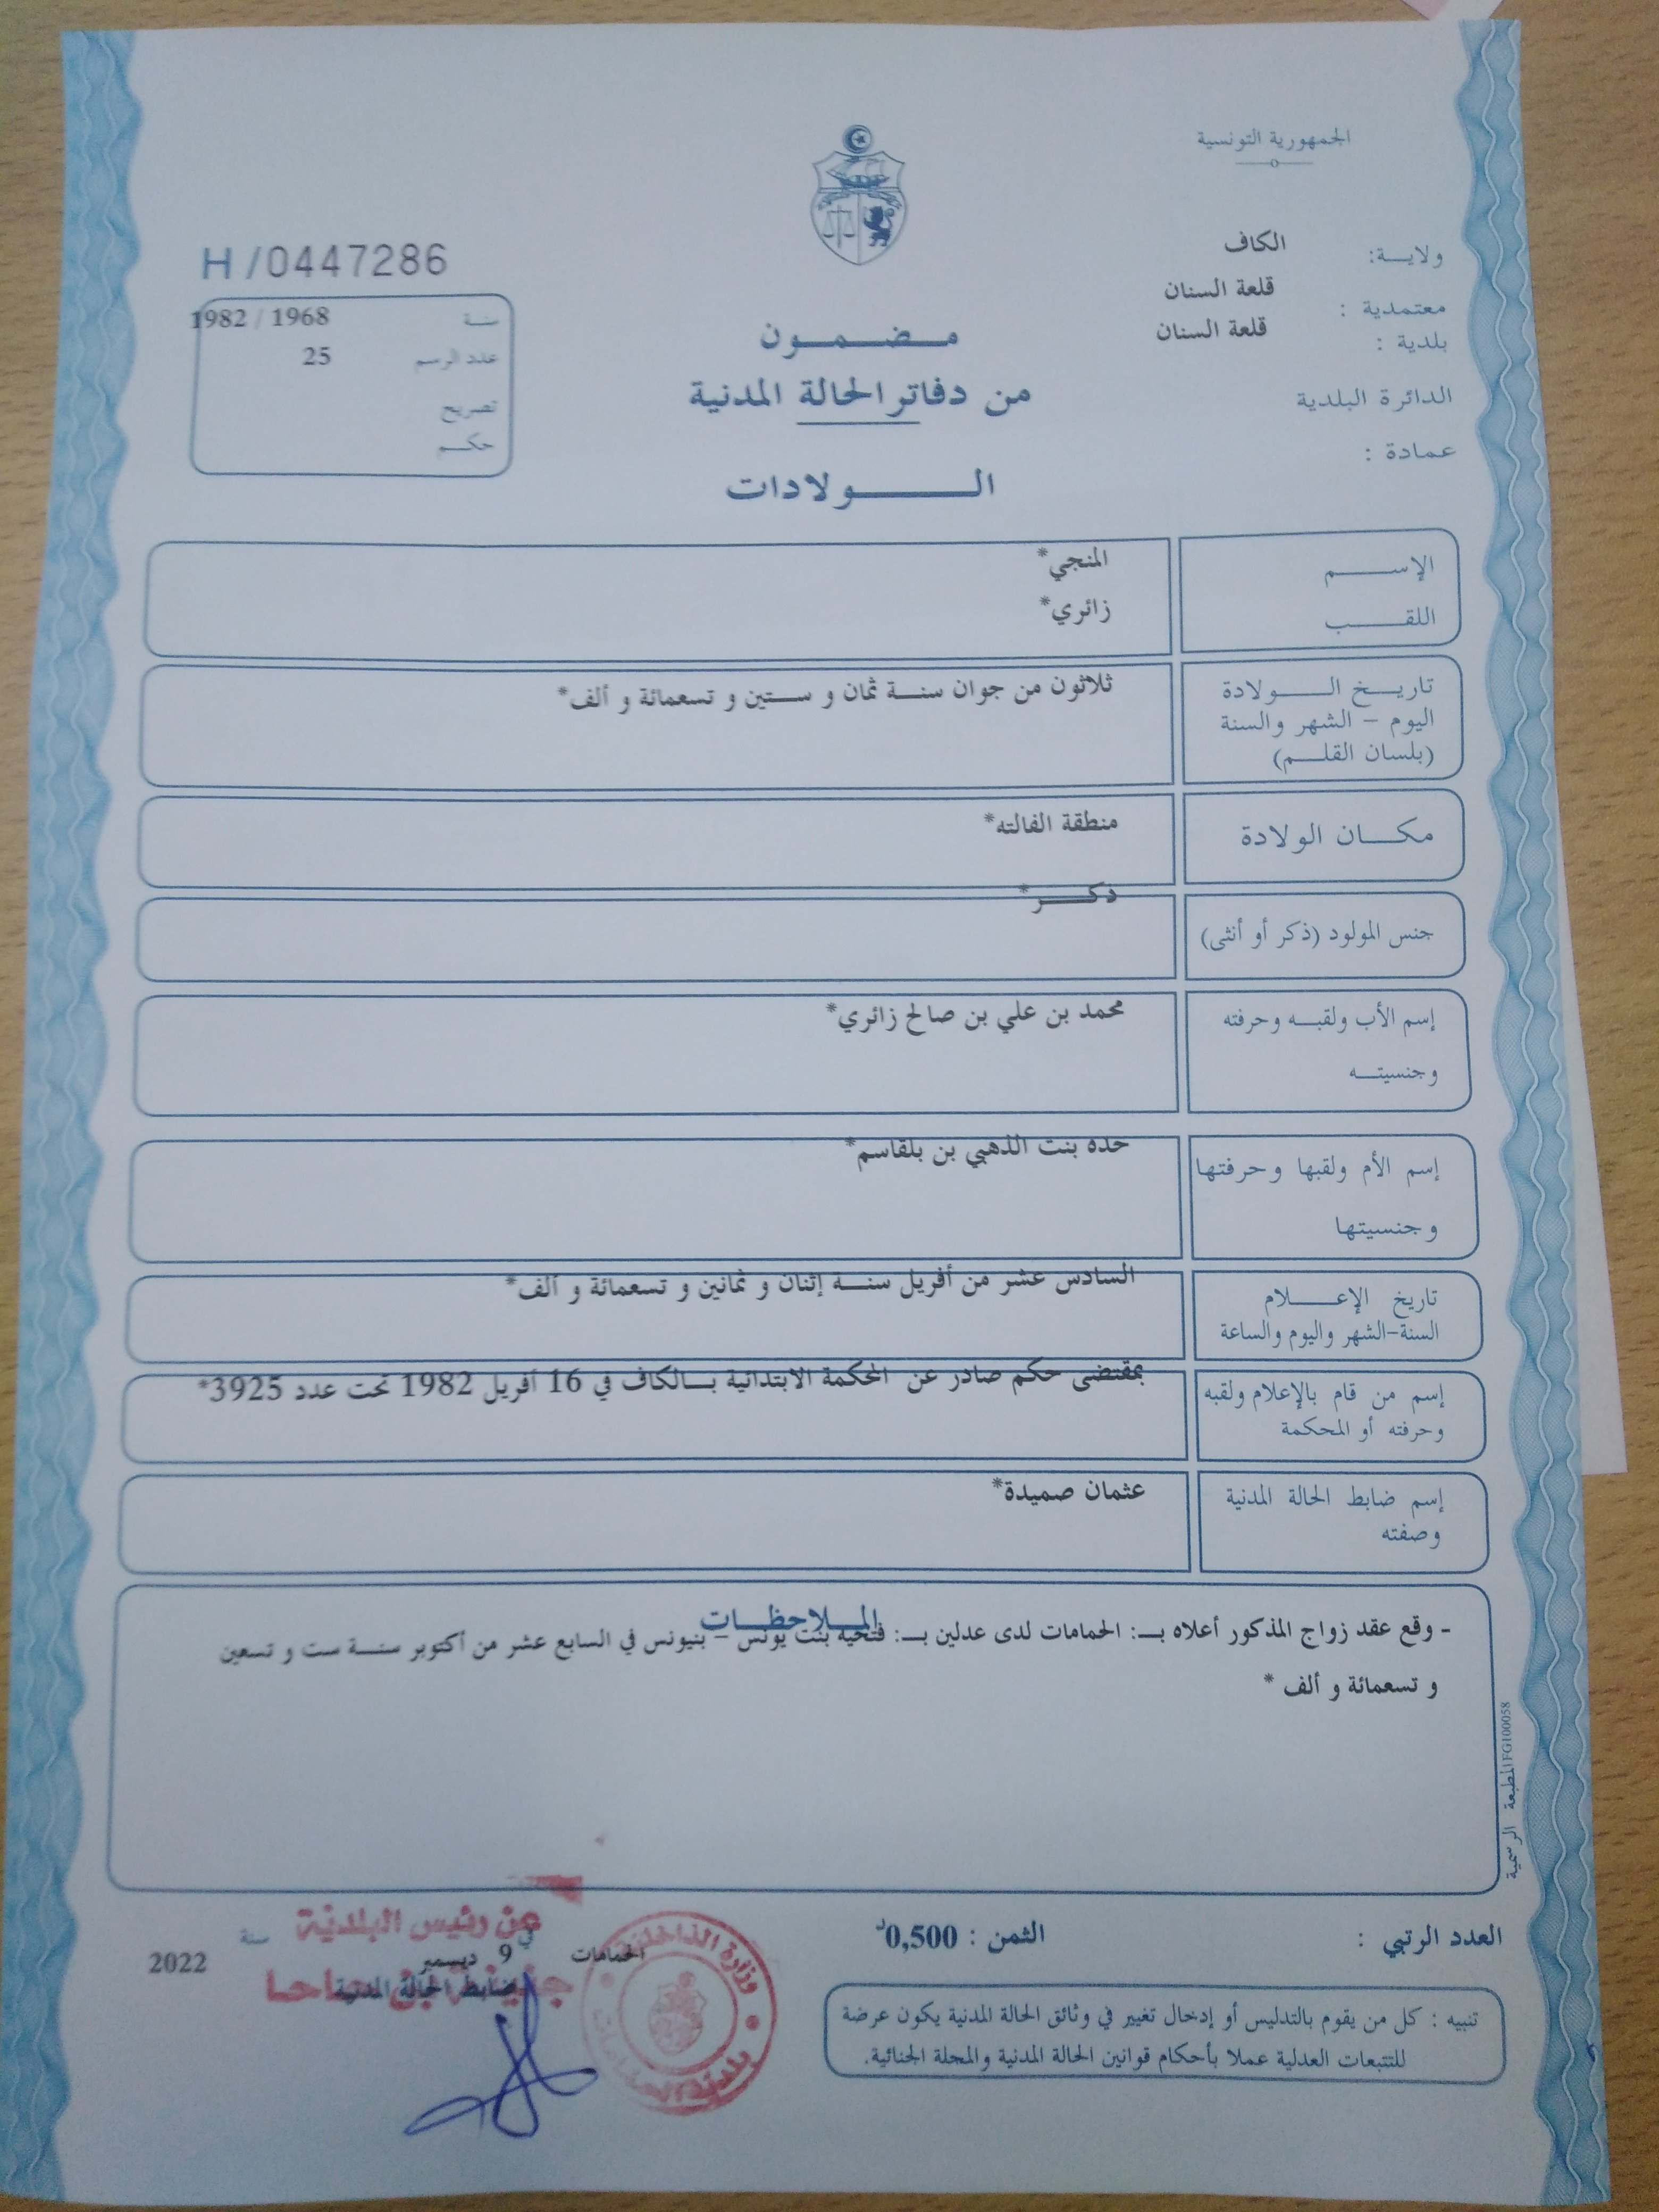 الجمهورية التونسية
ولاية: الكاف
معتمدية : قلعة السنان
بلدية : قلعة السنان
الدائرة البلدية
عمادة :
H/0447286
سنة 1968 / 1982
عدد الرسم 25
تصريح
حكم
مضمون
من دفاتر الحالة المدنية
الولادات
الإسم المنجي*
اللقب زائري*
تاريخ الولادة ثلاثون من جوان سنة ثمان و ستين و تسعمائة و ألف*
اليوم - الشهر والسنة
(بلسان القلم)
مكان الولادة منطقة الفالته*
جنس المولود (ذكر أو أنثى) ذكر*
إسم الأب ولقبه وحرفته محمد بن علي بن صالح زائري*
وجنسيته
إسم الأم ولقبها وحرفتها حده بنت الذهبي بن بلقاسم*
وجنسيتها
تاريخ الإعلام السادس عشر من أفريل سنة إثنان و ثمانين و تسعمائة و ألف*
السنة-الشهر واليوم والساعة
إسم من قام بالإعلام ولقبه بمقتضى حكم صادر عن المحكمة الابتدائية بالكاف في 16 أفريل 1982 تحت عدد 3925*
وحرفته أو المحكمة
إسم ضابط الحالة المدنية عثمان صميدة*
وصفته
الملاحظات
- وقع عقد زواج المذكور أعلاه بـ: الحمامات لدى عدلين بـ: فتحية بنت يونس - بنيونس في السابع عشر من أكتوبر سنة ست و تسعين
و تسعمائة و ألف *
المطبعة الرسمية FG100058
العدد الرتبي :
الثمن : 0,500د
الحمامات في 9 ديسمبر سنة 2022
عن رئيس البلدية
ضابط الحالة المدنية
وزارة الداخلية
بلدية الحمامات
تنبيه : كل من يقوم بالتدليس أو إدخال تغيير في وثائق الحالة المدنية يكون عرضة
للتتبعات العدلية عملا بأحكام قوانين الحالة المدنية والمجلة الجنائية.